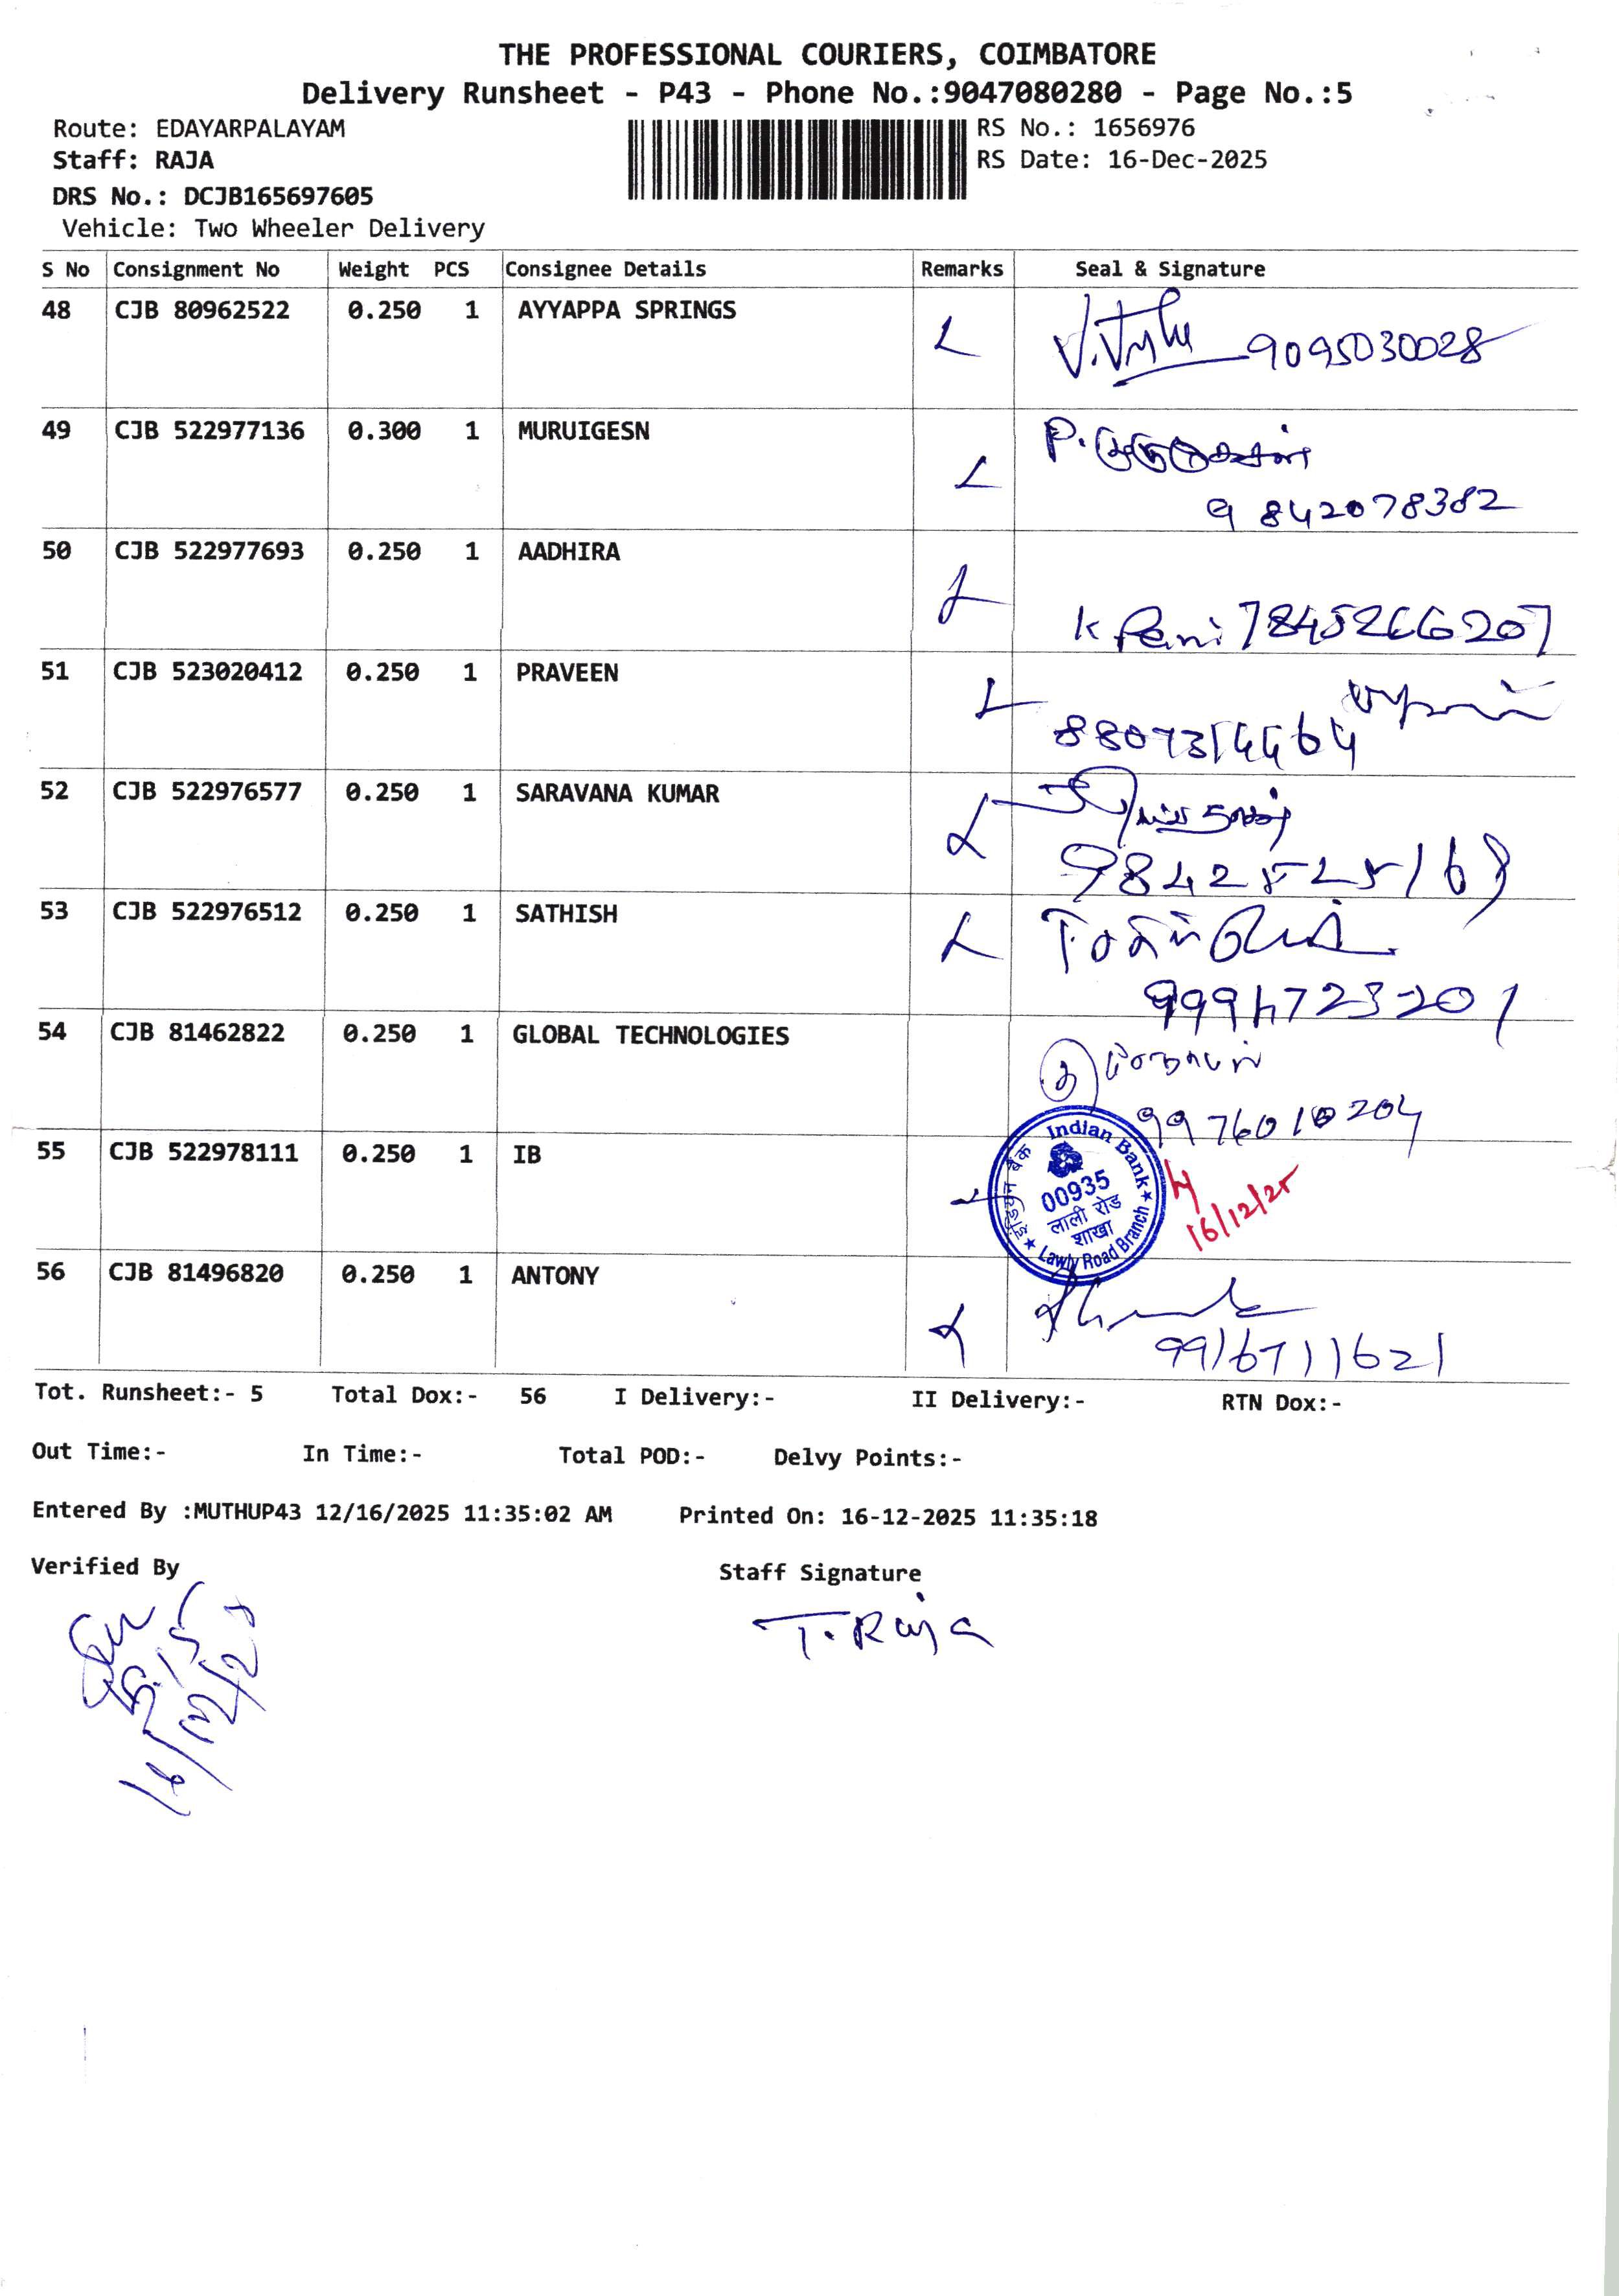 THE PROFESSIONAL COURIERS, COIMBATORE
Delivery Runsheet - P43 - Phone No.:9047080280 - Page No.:5
Route: EDAYARPALAYAM
Staff: RAJA
DRS No.: DCJB165697605
Vehicle: Two Wheeler Delivery
RS No.: 1656976
RS Date: 16-Dec-2025
S No Consignment No Weight PCS Consignee Details Remarks Seal & Signature
48 CJB 80962522 0.250 1 AYYAPPA SPRINGS
9095030028
49 CJB 522977136 0.300 1 MURUIGESN
9842078382
50 CJB 522977693 0.250 1 AADHIRA
7845266207
51 CJB 523020412 0.250 1 PRAVEEN
52 CJB 522976577 0.250 1 SARAVANA KUMAR
53 CJB 522976512 0.250 1 SATHISH
54 CJB 81462822 0.250 1 GLOBAL TECHNOLOGIES
9976010204
55 CJB 522978111 0.250 1 IB
इंडियन बैंक Indian Bank
00935
लाली रोड
शाखा
Lawly Road Branch
16/12/25
56 CJB 81496820 0.250 1 ANTONY
9916711621
Tot. Runsheet:- 5 Total Dox:- 56 I Delivery:- II Delivery:- RTN Dox:-
Out Time:- In Time:- Total POD:- Delvy Points:-
Entered By :MUTHUP43 12/16/2025 11:35:02 AM Printed On: 16-12-2025 11:35:18
Verified By Staff Signature
T. Raja
16/12/25